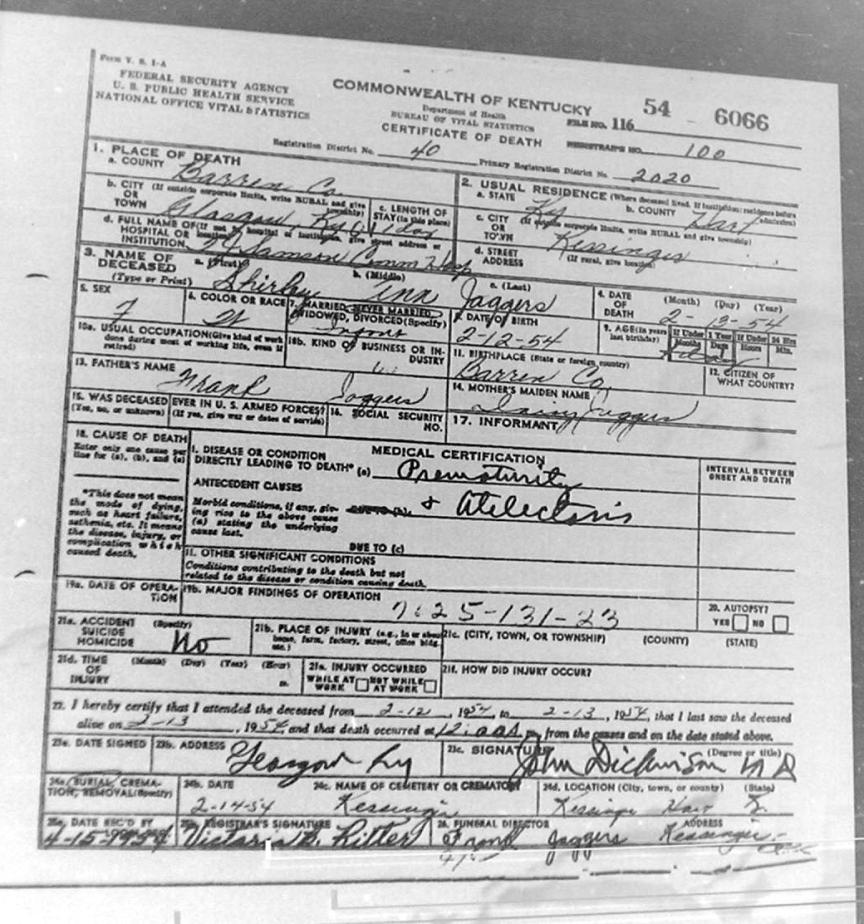 Form V. S. 1-A
FEDERAL SECURITY AGENCY
U. S. PUBLIC HEALTH SERVICE
NATIONAL OFFICE VITAL STATISTICS
COMMONWEALTH OF KENTUCKY
Department of Health
BUREAU OF VITAL STATISTICS
CERTIFICATE OF DEATH
54 - 6066
FILE NO. 116
REGISTRAR'S NO. 100
Registration District No. 40
Primary Registration District No. 2020
1. PLACE OF DEATH
a. COUNTY Barren Co.
b. CITY (If outside corporate limits, write RURAL and give township)
OR TOWN Glasgow, Ky
c. LENGTH OF STAY (in this place) 1 day
d. FULL NAME OF (If not in hospital or institution, give street address or location)
HOSPITAL OR INSTITUTION Samson Comm Hosp
2. USUAL RESIDENCE (Where deceased lived. If institution: residence before admission)
a. STATE Ky
b. COUNTY Hart
c. CITY (If outside corporate limits, write RURAL and give township)
OR TOWN Kessinger
d. STREET ADDRESS (If rural, give location)
3. NAME OF DECEASED (Type or Print)
a. (First) Shirley b. (Middle) Ann c. (Last) Jaggers
4. DATE OF DEATH (Month) (Day) (Year) 2-13-54
5. SEX F
6. COLOR OR RACE W
7. MARRIED, NEVER MARRIED, WIDOWED, DIVORCED (Specify) Infant
8. DATE OF BIRTH 2-12-54
9. AGE (In years last birthday) If Under 1 Year Months Days If Under 24 Hrs Hours Min.
10a. USUAL OCCUPATION (Give kind of work done during most of working life, even if retired)
10b. KIND OF BUSINESS OR INDUSTRY
11. BIRTHPLACE (State or foreign country) Barren Co.
12. CITIZEN OF WHAT COUNTRY?
13. FATHER'S NAME Frank Jaggers
14. MOTHER'S MAIDEN NAME Daisy Jaggers
15. WAS DECEASED EVER IN U. S. ARMED FORCES?
(Yes, no, or unknown) (If yes, give war or dates of service)
16. SOCIAL SECURITY NO.
17. INFORMANT
18. CAUSE OF DEATH
Enter only one cause per line for (a), (b), and (c)
*This does not mean the mode of dying, such as heart failure, asthenia, etc. It means the disease, injury, or complication which caused death.
MEDICAL CERTIFICATION
INTERVAL BETWEEN ONSET AND DEATH
I. DISEASE OR CONDITION DIRECTLY LEADING TO DEATH* (a) Prematurity
ANTECEDENT CAUSES
Morbid conditions, if any, giving rise to the above cause (a) stating the underlying cause last.
DUE TO (b) & Atelectasis
DUE TO (c)
II. OTHER SIGNIFICANT CONDITIONS
Conditions contributing to the death but not related to the disease or condition causing death.
19a. DATE OF OPERATION
19b. MAJOR FINDINGS OF OPERATION
20. AUTOPSY? YES NO
21a. ACCIDENT SUICIDE HOMICIDE (Specify) No
21b. PLACE OF INJURY (e.g., in or about home, farm, factory, street, office bldg. etc.)
21c. (CITY, TOWN, OR TOWNSHIP) (COUNTY) (STATE)
21d. TIME OF INJURY (Month) (Day) (Year) (Hour) m.
21e. INJURY OCCURRED WHILE AT WORK NOT WHILE AT WORK
21f. HOW DID INJURY OCCUR?
22. I hereby certify that I attended the deceased from 2-12, 1954, to 2-13, 1954, that I last saw the deceased
alive on 2-13, 1954, and that death occurred at m., from the causes and on the date stated above.
23a. DATE SIGNED
23b. ADDRESS Glasgow Ky
23c. SIGNATURE (Degree or title) John Dickinson MD
24a. BURIAL, CREMATION, REMOVAL (Specify)
24b. DATE 2-14-54
24c. NAME OF CEMETERY OR CREMATORY Kessinger
24d. LOCATION (City, town, or county) (State) Kessinger Hart
25a. DATE REC'D BY 4-15-1954
25b. REGISTRAR'S SIGNATURE Victoria B. Ritter
26. FUNERAL DIRECTOR ADDRESS
Frank Jaggers Kessinger